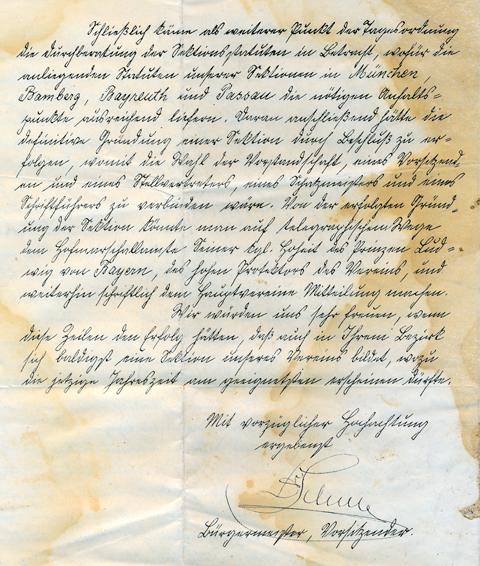 Schließlich käme als weiterer Punkt der Tagesordnung
die Durchberatung der Sektionsstatuten in Betracht, wofür die
anliegenden Statuten unserer Sektionen in München,
Bamberg, Bayreuth und Passau die nötigen Anhalts-
punkte ausreichend liefern. Daran anschließend hätte die
definitive Gründung einer Sektion durch Beschluß zu er-
folgen, womit die Wahl der Vorstandschaft, eines Vorsitzend-
en und eines Stellvertreters, eines Schatzmeisters und eines
Schriftführers zu verbinden wäre. Von der erfolgten Gründ-
ung der Sektion könnte man auf telegraphischem Wege
dem Hofmarschallamte Seiner kgl. Hoheit des Prinzen Lud-
wig von Bayern, des hohen Protektors des Vereins, und
weiterhin schriftlich dem Hauptvereine Mitteilung machen.
Wir würden uns sehr freuen, wenn
diese Zeilen den Erfolg hätten, daß auch in Ihrem Bezirk
sich baldigst eine Sektion unseres Vereins bildet, wozu
die jetzige Jahreszeit am geeignetsten erscheinen dürfte.
Mit vorzüglicher Hochachtung
ergebenst
Bürgermeister, Vorsitzender.